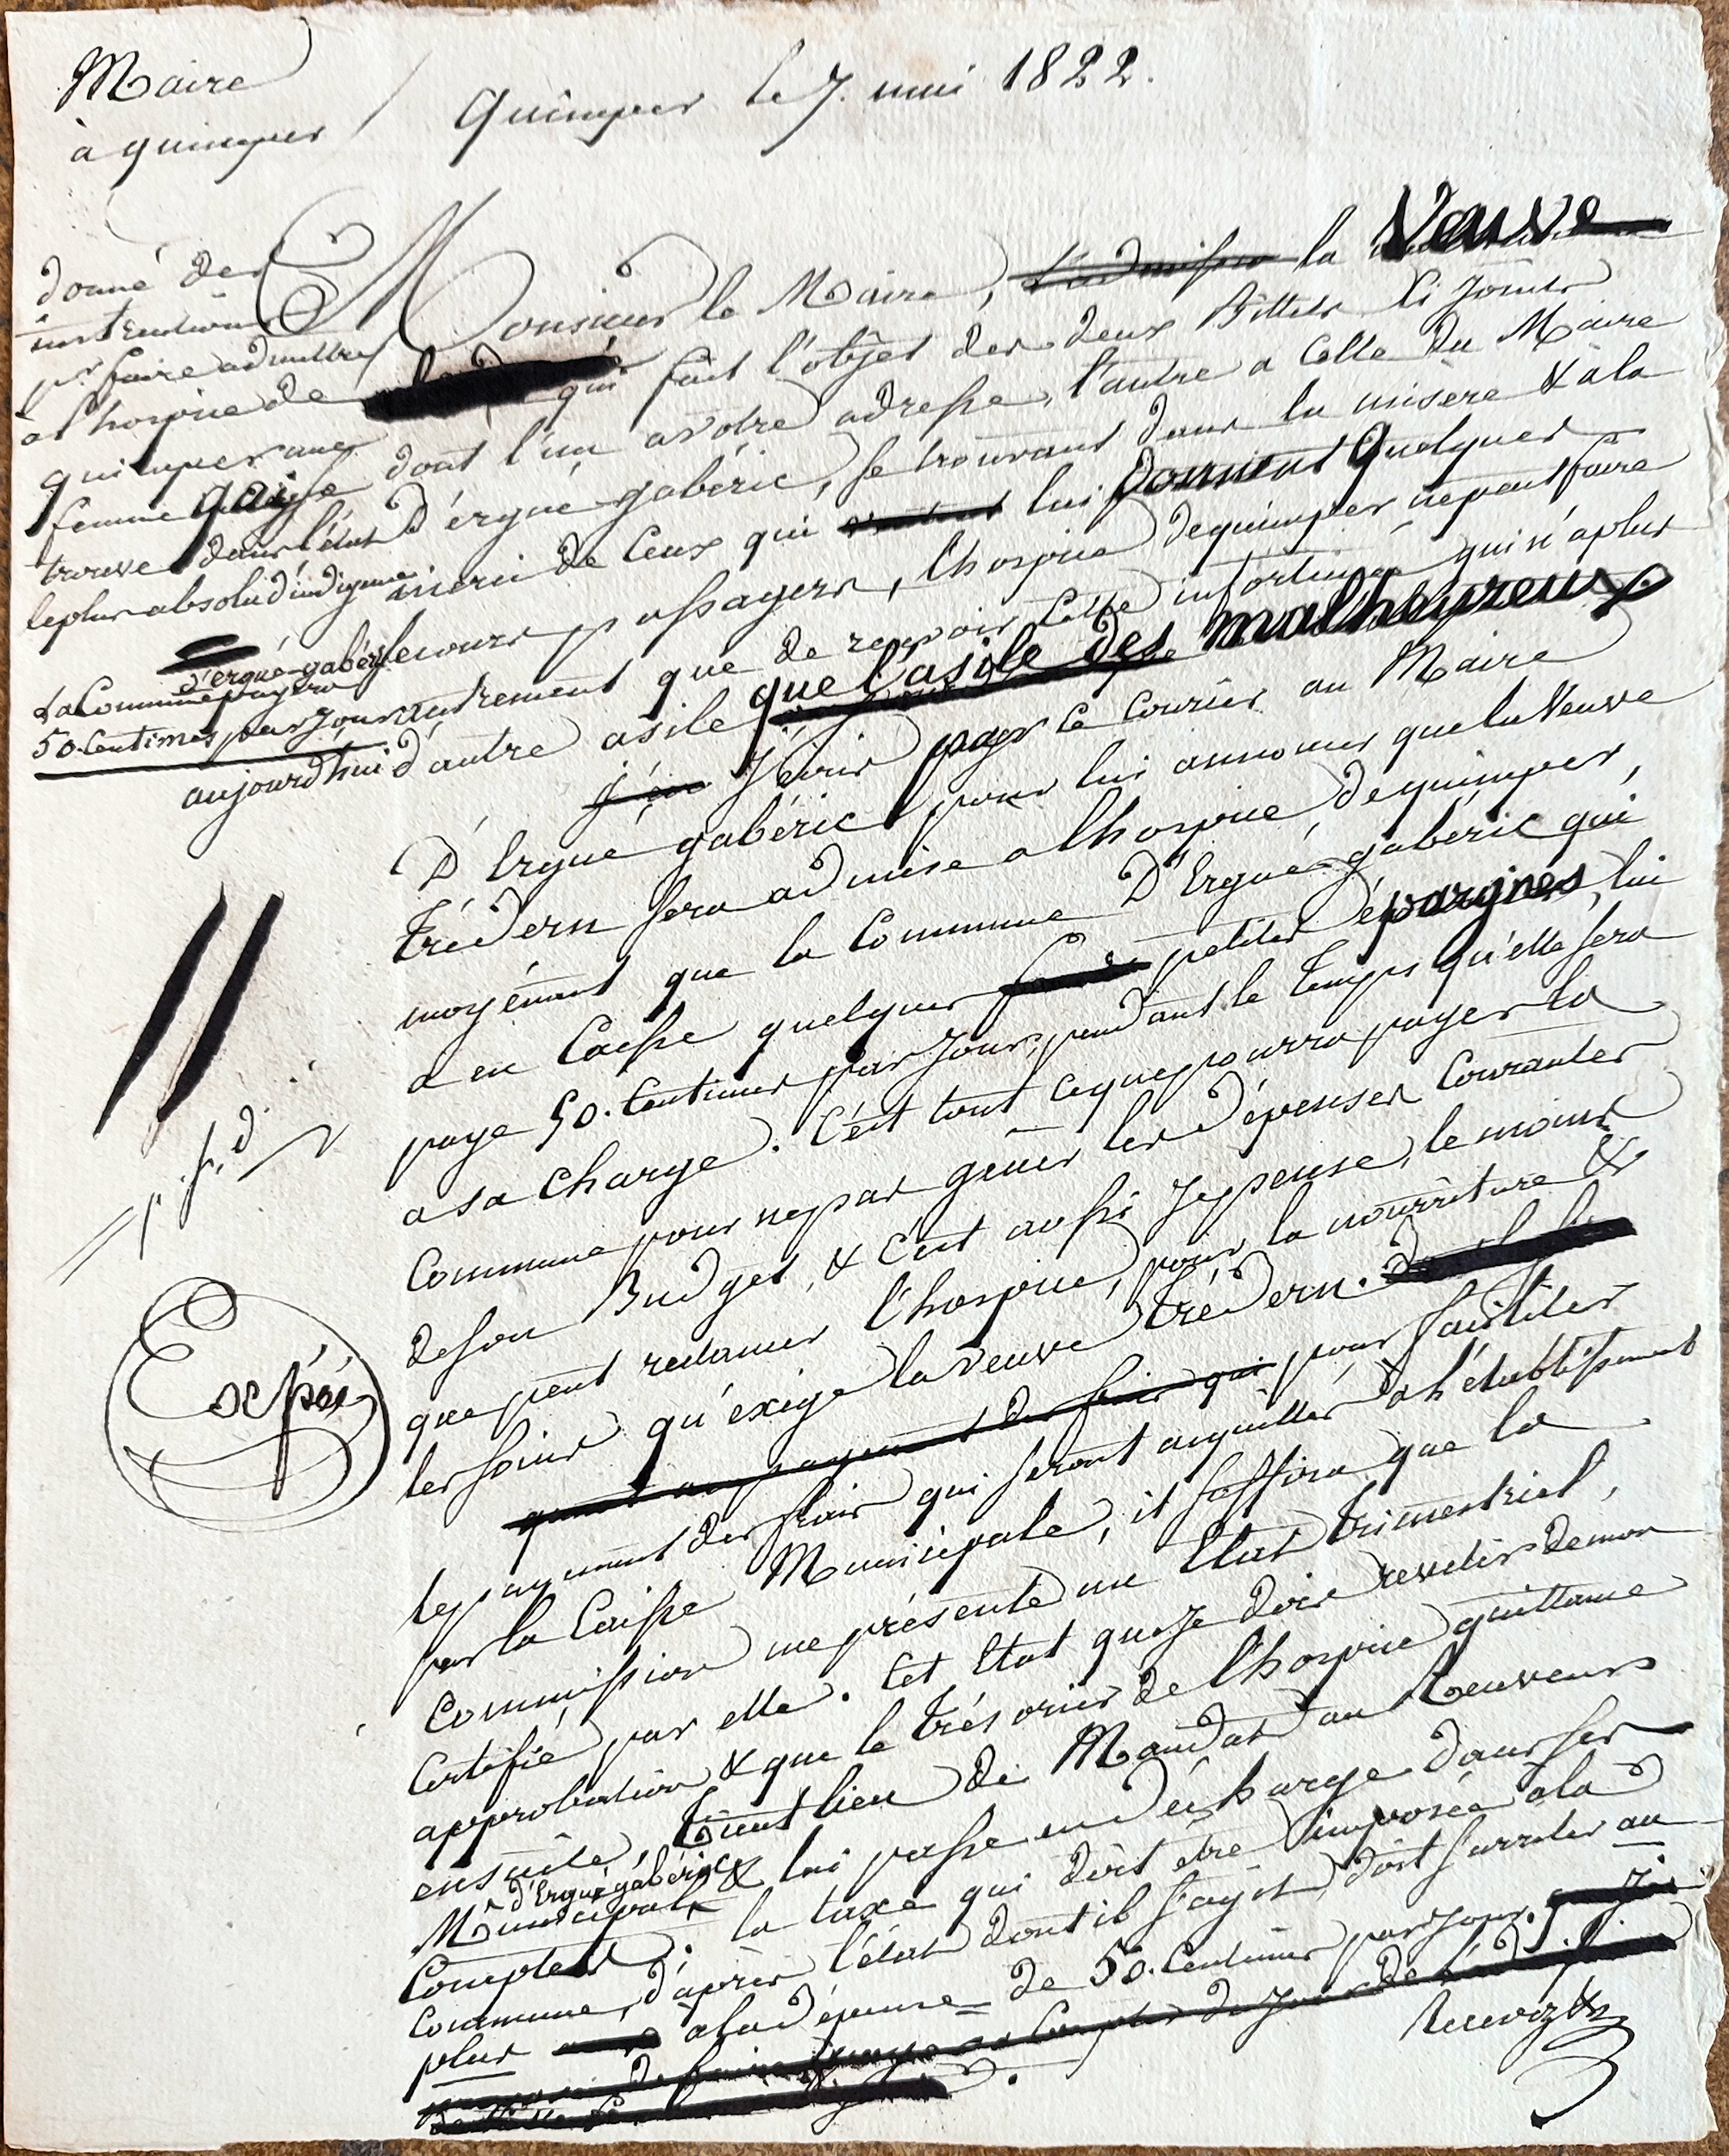 Maire
à quimper
Quimper le 7. mai 1822.
donné des
instructions
pr. faire admettre
à l'hospice de
quimper une
femme qui se
trouve dans l'état
le plus absolu d'indigence
d'ergué-gabéric
La Commune payera
50. Centimes par Jour
aujourd'hui
p. f. d.
Expé
Monsieur le Maire, l'admission la Veuve
qui fait l'objet des deux Billets Ci Joints
dont l'un a votre adresse, l'autre a Celle du Maire
D'ergué-gabéric, se trouvant dans la misere & a la
merci de Ceux qui veulent lui donnent quelques
secours passagers, l'hospice de quimper ne peut faire
autrement que de recevoir Cette infortunée qui n'a plus
d'autre asile que l'asile des malheureux
J'écris par Ce Courier au Maire
D'Ergué gabéric pour lui annoncer que la Veuve
Trédern sera admise a l'hospice de quimper,
moyénant que la Commune D'Ergué-gabéric qui
a en Caisse quelques petites épargnes, lui
paye 50. Centimes par Jour, pendant le temps qu'elle sera
a sa Charge. C'est tout ce que pourra payer la
Commune pour ne pas gêner les dépenses Courantes
de son Budget, & C'est aussi Je pense, le moins
que peut reclamer l'hospice, pour la nourriture &
les soins qu'exige la veuve Trédern.
quant au payement des frais qui pour faciliter
le payement des frais qui seront acquittés a l'établissement
par la Caisse Municipale, il suffira que la
Commission me présente un Etat trimestriel,
Certifié par elle. Cet Etat que Je dois revetir de mon
approbation & que le trésorier de l'hospice quittance
ensuite, Tient lieu de Mandat au Receveur
d'Ergué gabéric
Municipal & lui passe en décharge dans ses
Comptes. la taxe qui doit être imposée a la
Commune, d'après l'état dont il s'agit, doit s'arreter au
plus a la dépense de 50. Centimes par Jour.
Recevez &a